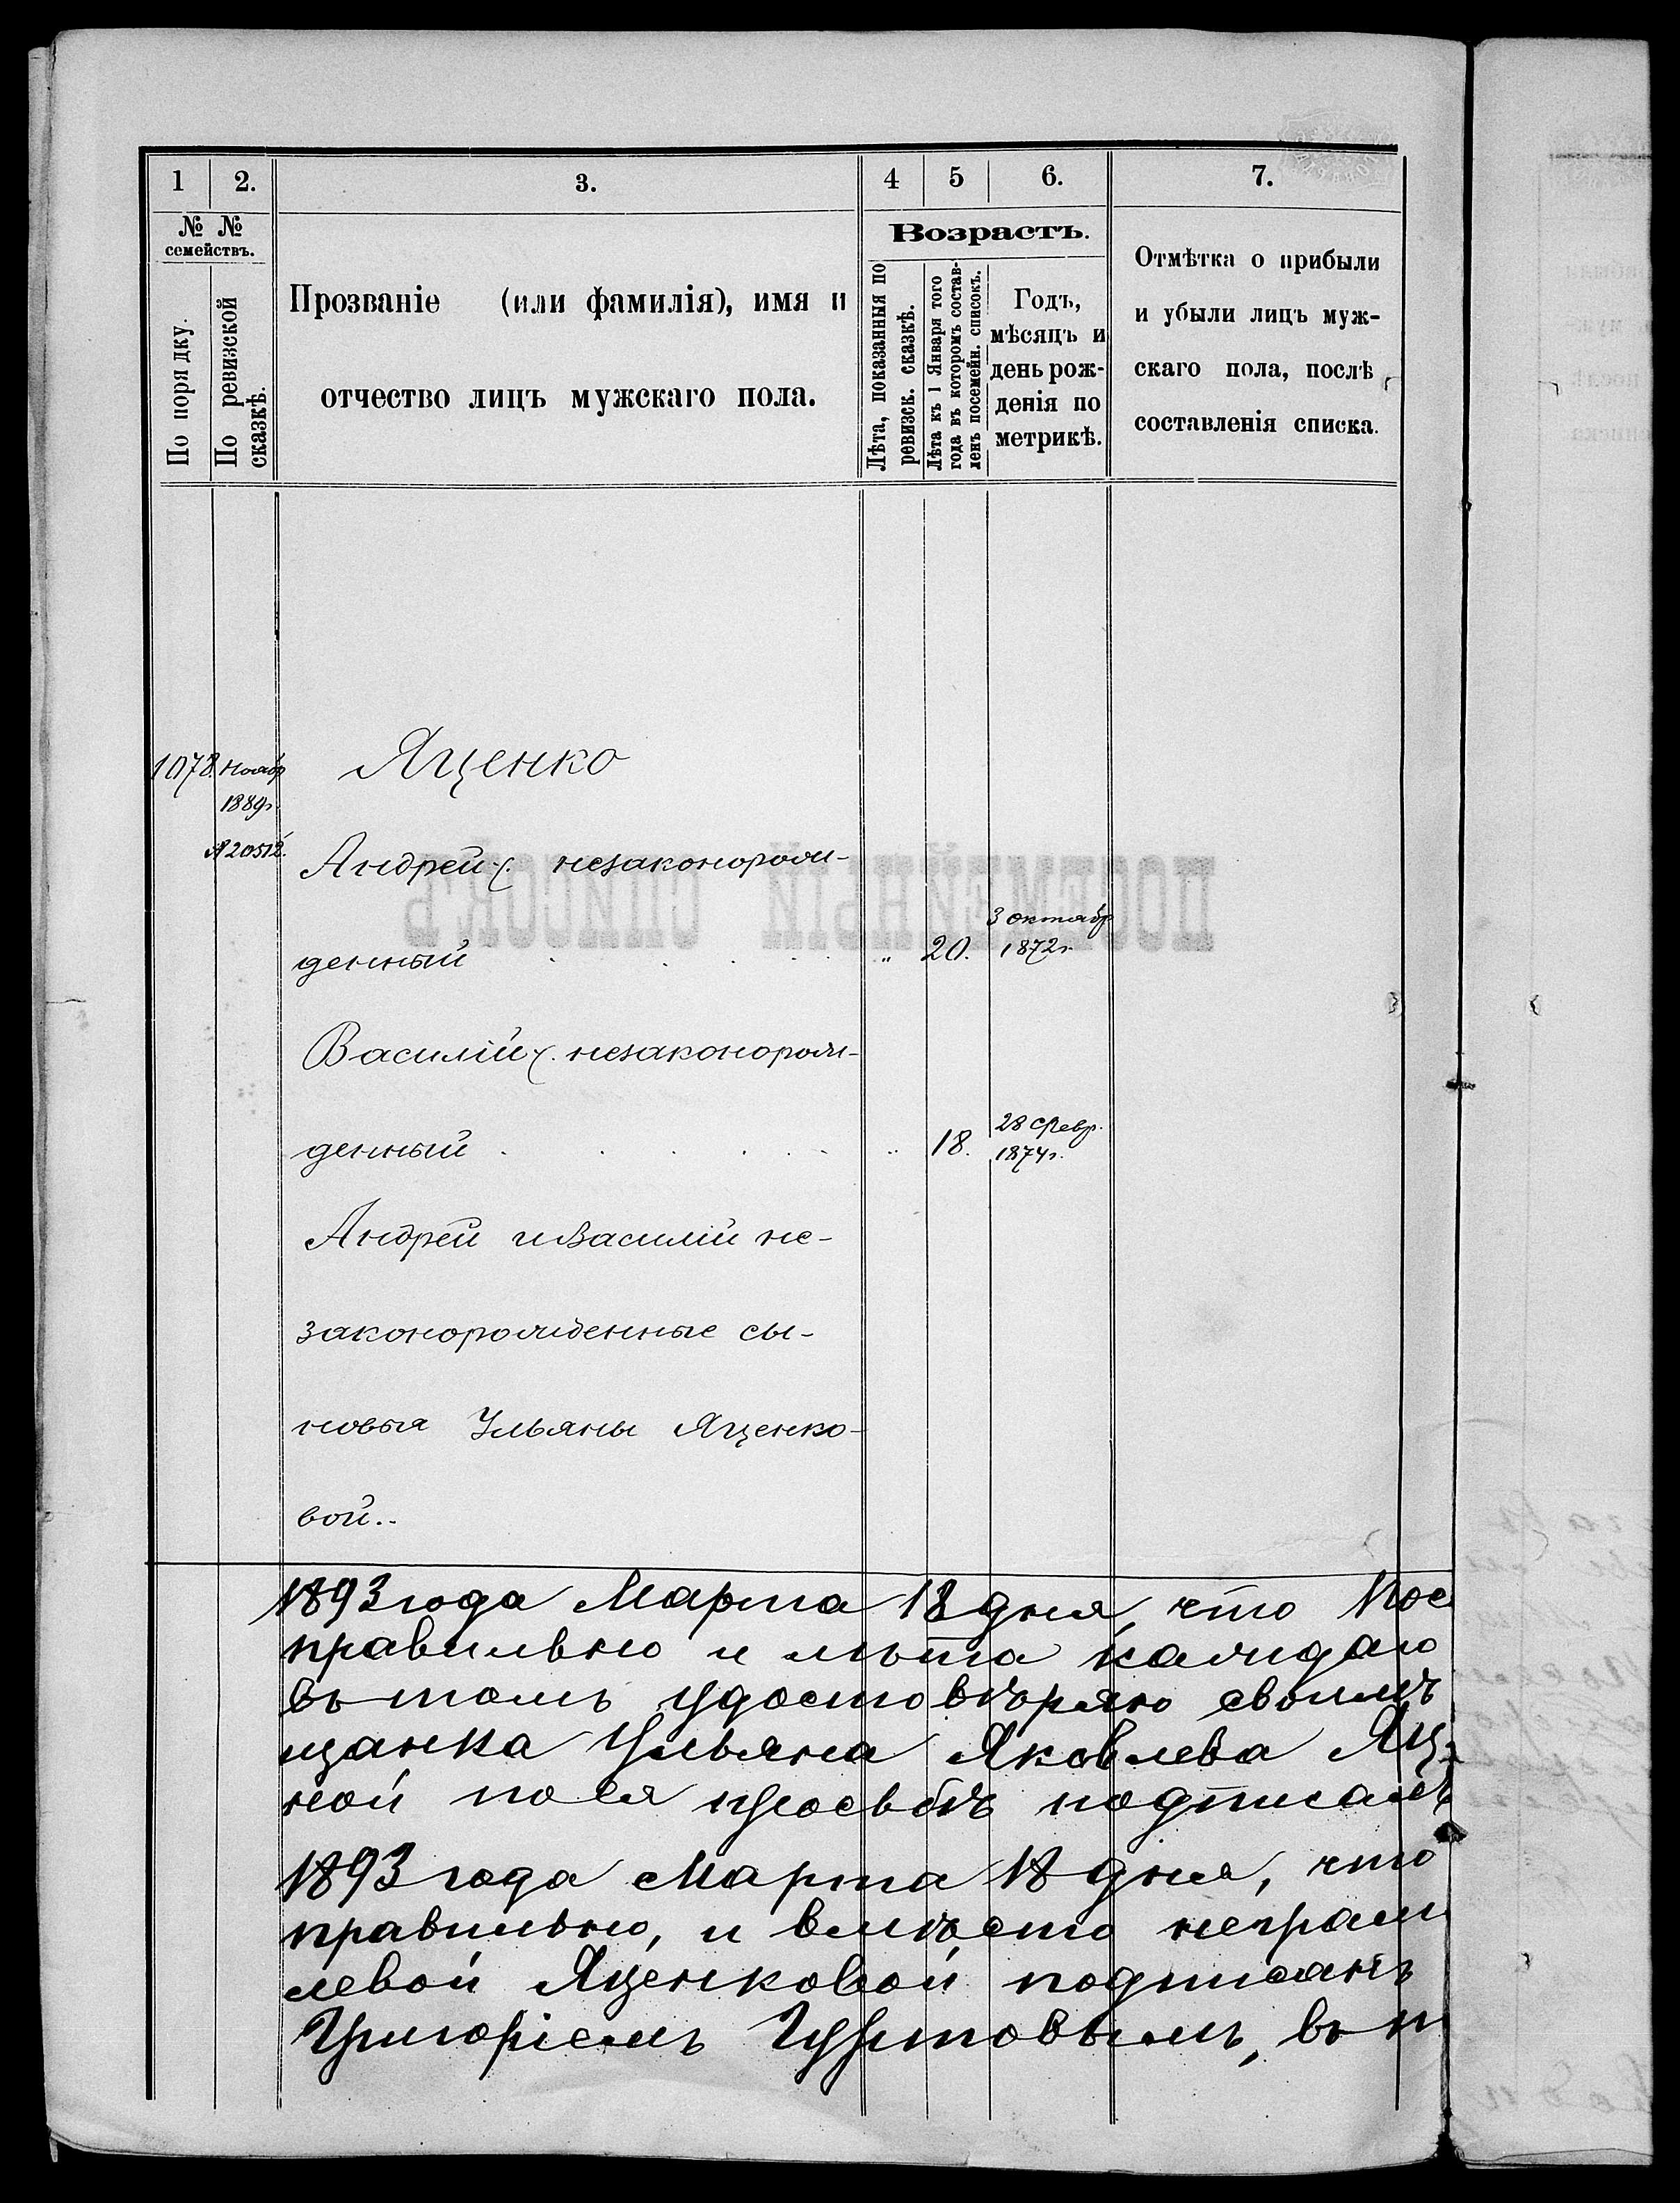 1 2. 3. 4 5 6. 7.
№ № семействъ.
По порядку.
По ревизской сказкѣ.
Прозваніе (или фамилія), имя и
отчество лицъ мужскаго пола.
Возрастъ.
Лѣта, показанныя по
ревизск. сказкѣ.
Лѣта къ 1 Января того
года въ которомъ состав-
ленъ посемейн. списокъ.
Годъ,
мѣсяцъ и
день рож-
денія по
метрикѣ.
Отмѣтка о прибыли
и убыли лицъ муж-
скаго пола, послѣ
составленія списка.
1078. Ноябр Яценко
1889г.
№ 20512.
Андрей незаконорож-
денный „ 20. 3 октябр 1872г.
ПОСЕМЕЙНЫЙ СПИСОКЪ
Василій незаконорож-
денный „ 18. 28 Февр. 1874г.
Андрей и Василій не-
законорожденные сы-
новья Ульяны Яценко-
вой..
1893 года Марта 18 дня, что Пос
правильно и лѣта каждаго
въ томъ удостовѣряю своимъ
щанка Ульяна Яковлева Яц
ной по ея просьбѣ подписалъ
1893 года Марта 18 дня, что
правильно, и вмѣсто неграм
левой Яценковой подписанъ
Григоріемъ Гуртовымъ, въ т